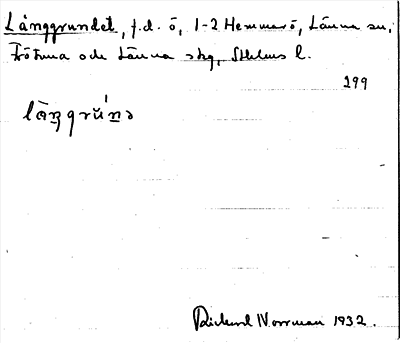 Långgrundet, f.d. ö, 1-2 Hemmarö, Länna sn,
Frötuna och Länna skg, Sthlms l.
299
lāŋgrŭ́nə
Rickard Norrman 1932.